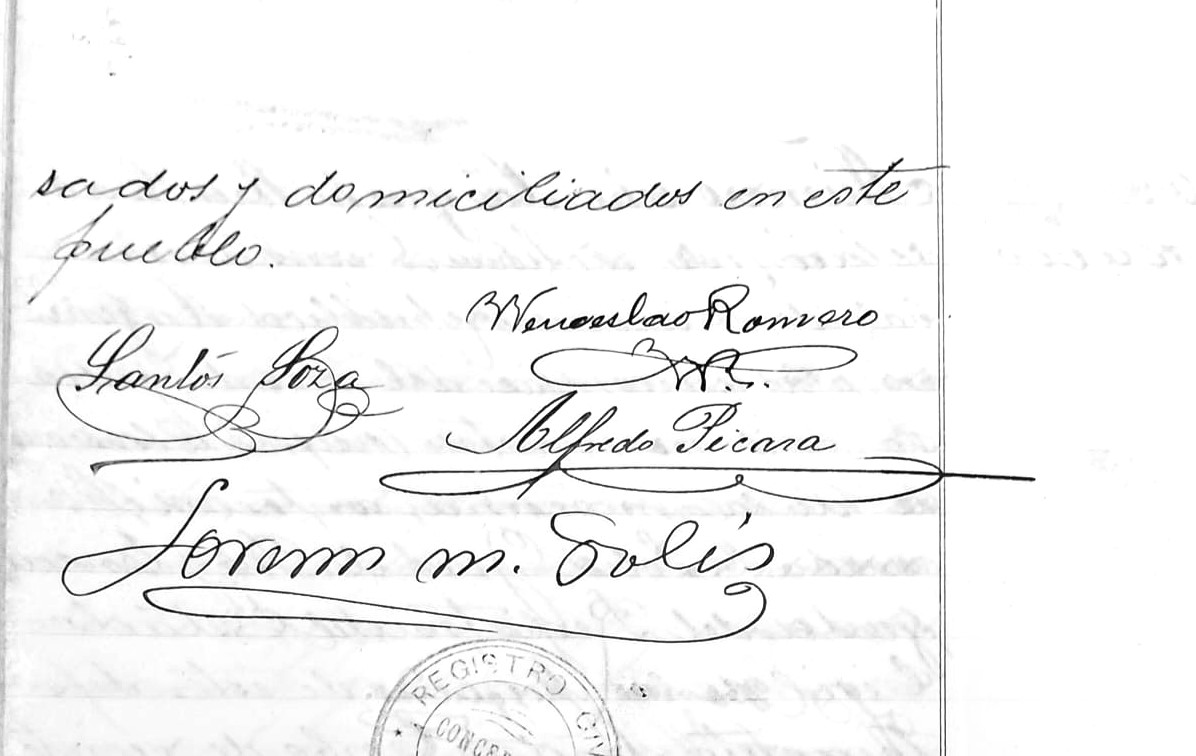 sados y domiciliados en este
pueblo.
Wenceslao Romero
W.R.
Santós Soza
Alfredo Picara
Lorenzo m. Solís
REGISTRO CIV